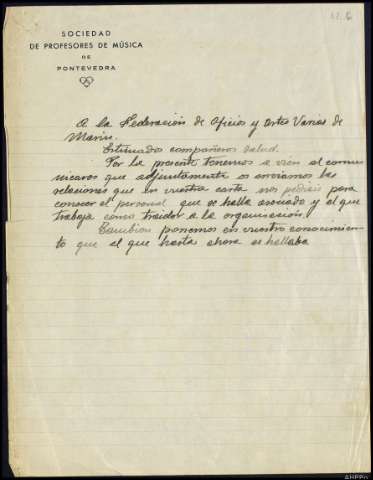 SOCIEDAD
DE PROFESORES DE MÚSICA
DE
PONTEVEDRA
A la Federación de Oficios y Artes Varias de
Marin.
Estimados compañeros salud.
Por la presente tenemos a vien el comu
nicaros que adjuntamente os enviamos las
relaciones que en vuestra carta nos pediais para
conocer el personal que se halla asociado y el que
trabaja como traidor a la organisación.
Tambien ponemos en vuestro conocimien
to que el que hasta ahora se hallaba
AHPPo